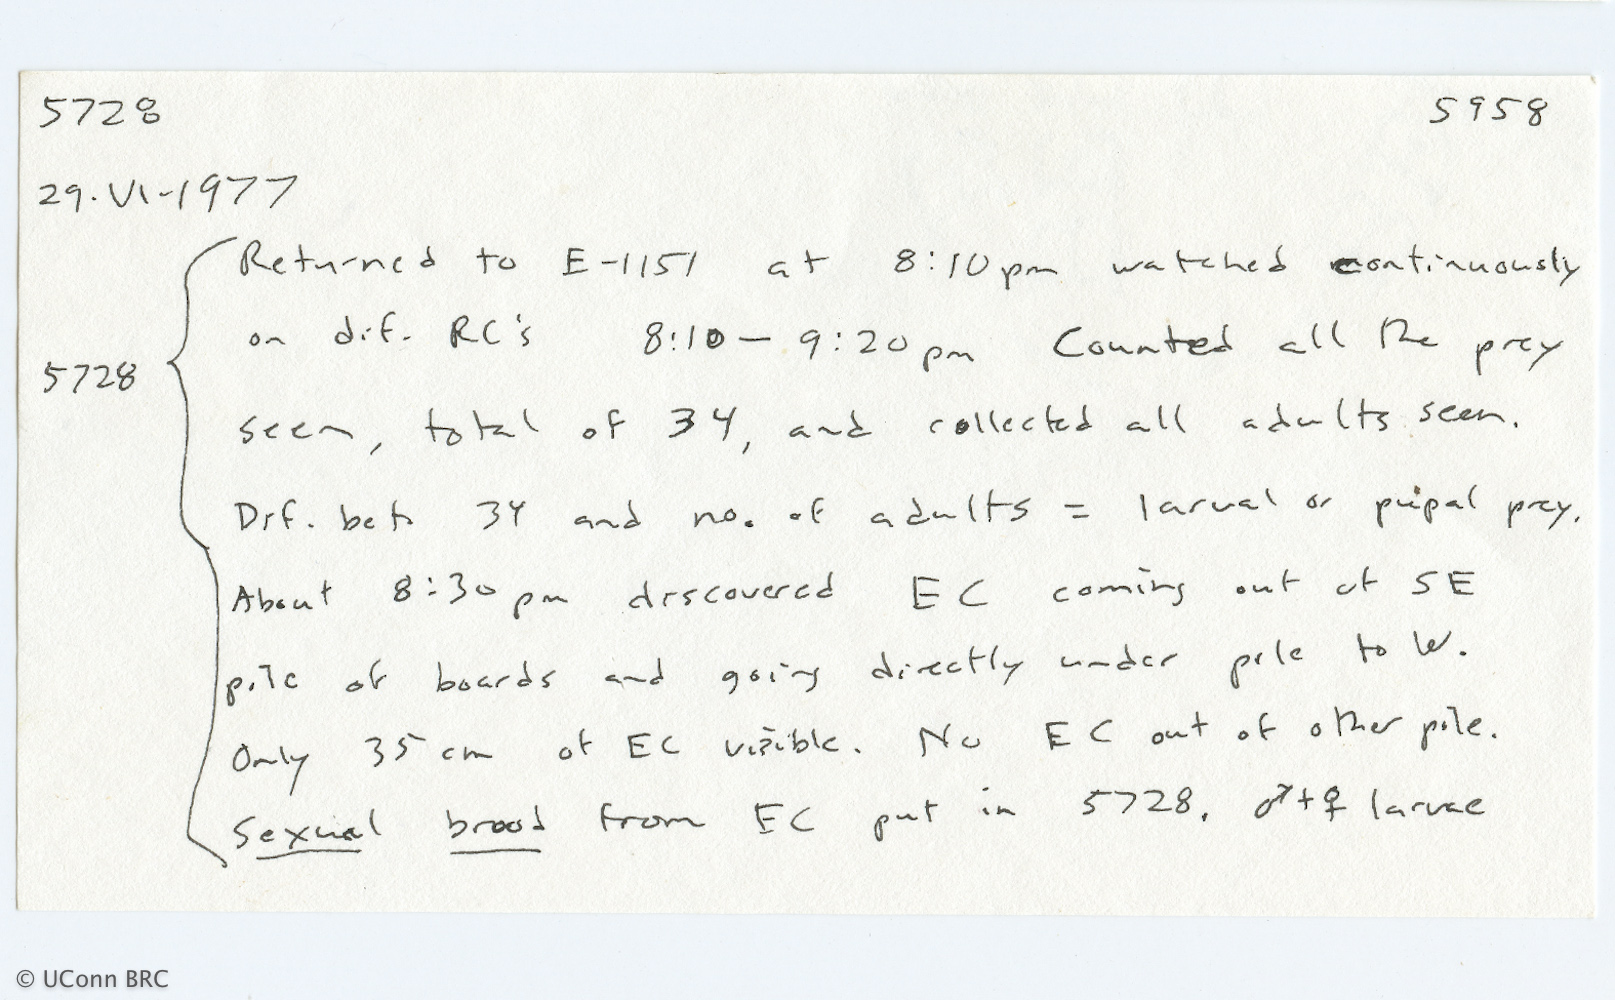 5728 5958
29-VI-1977
Returned to E-1151 at 8:10pm watched continuously
on dif. RC's 8:10 - 9:20pm Counted all the prey
5728
seen, total of 34, and collected all adults seen.
Dif. bet. 34 and no. of adults = larval or pupal prey.
About 8:30pm discovered EC coming out of SE
pile of boards and going directly under pile to W.
Only 35 cm of EC visible. No EC out of other pile.
Sexual brood from EC put in 5728. ♂+♀ larvae
© UConn BRC